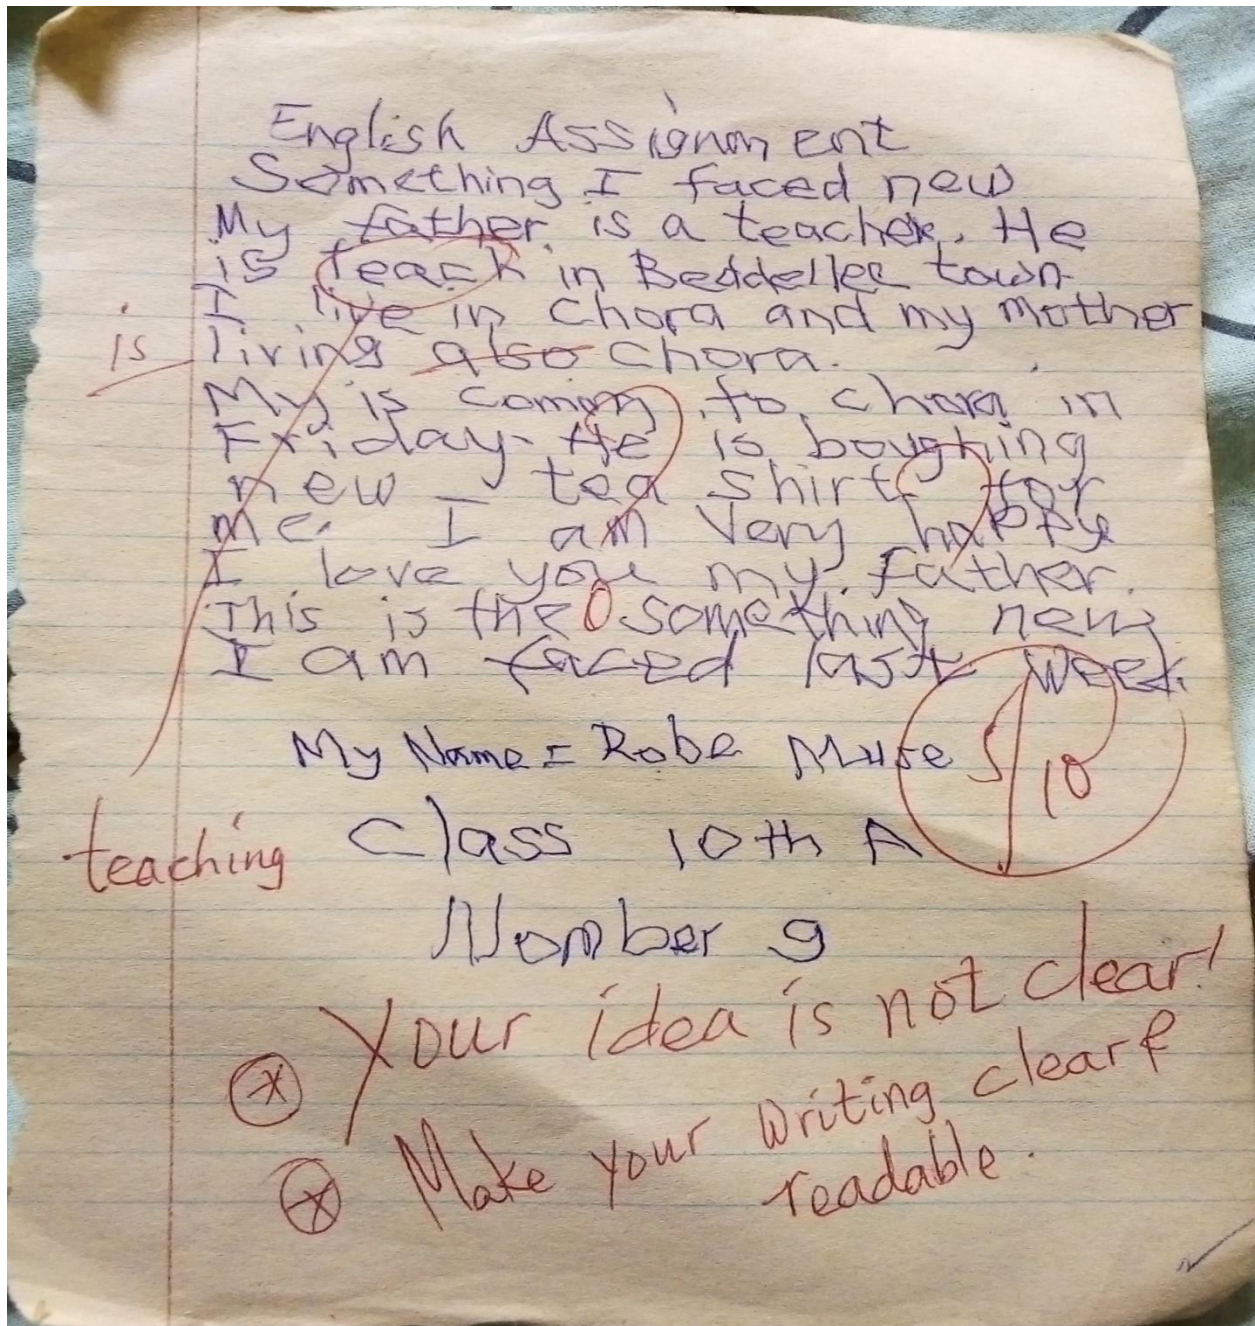 English Assignment
Something I faced new
My father is a teacher. He
is teach in Beddellee town
I live in Chora and my Mother
is living also chora.
My is coming to chora in
Friday. He is boughing
new tea shirt for
me. I am Very happy
I love you my father.
This is the something new
I am faced last week.
My Name = Robe Muse
5/10
teaching
Class 10th A
Nomber 9
Your idea is not clear!
Make your writing clear &
readable.